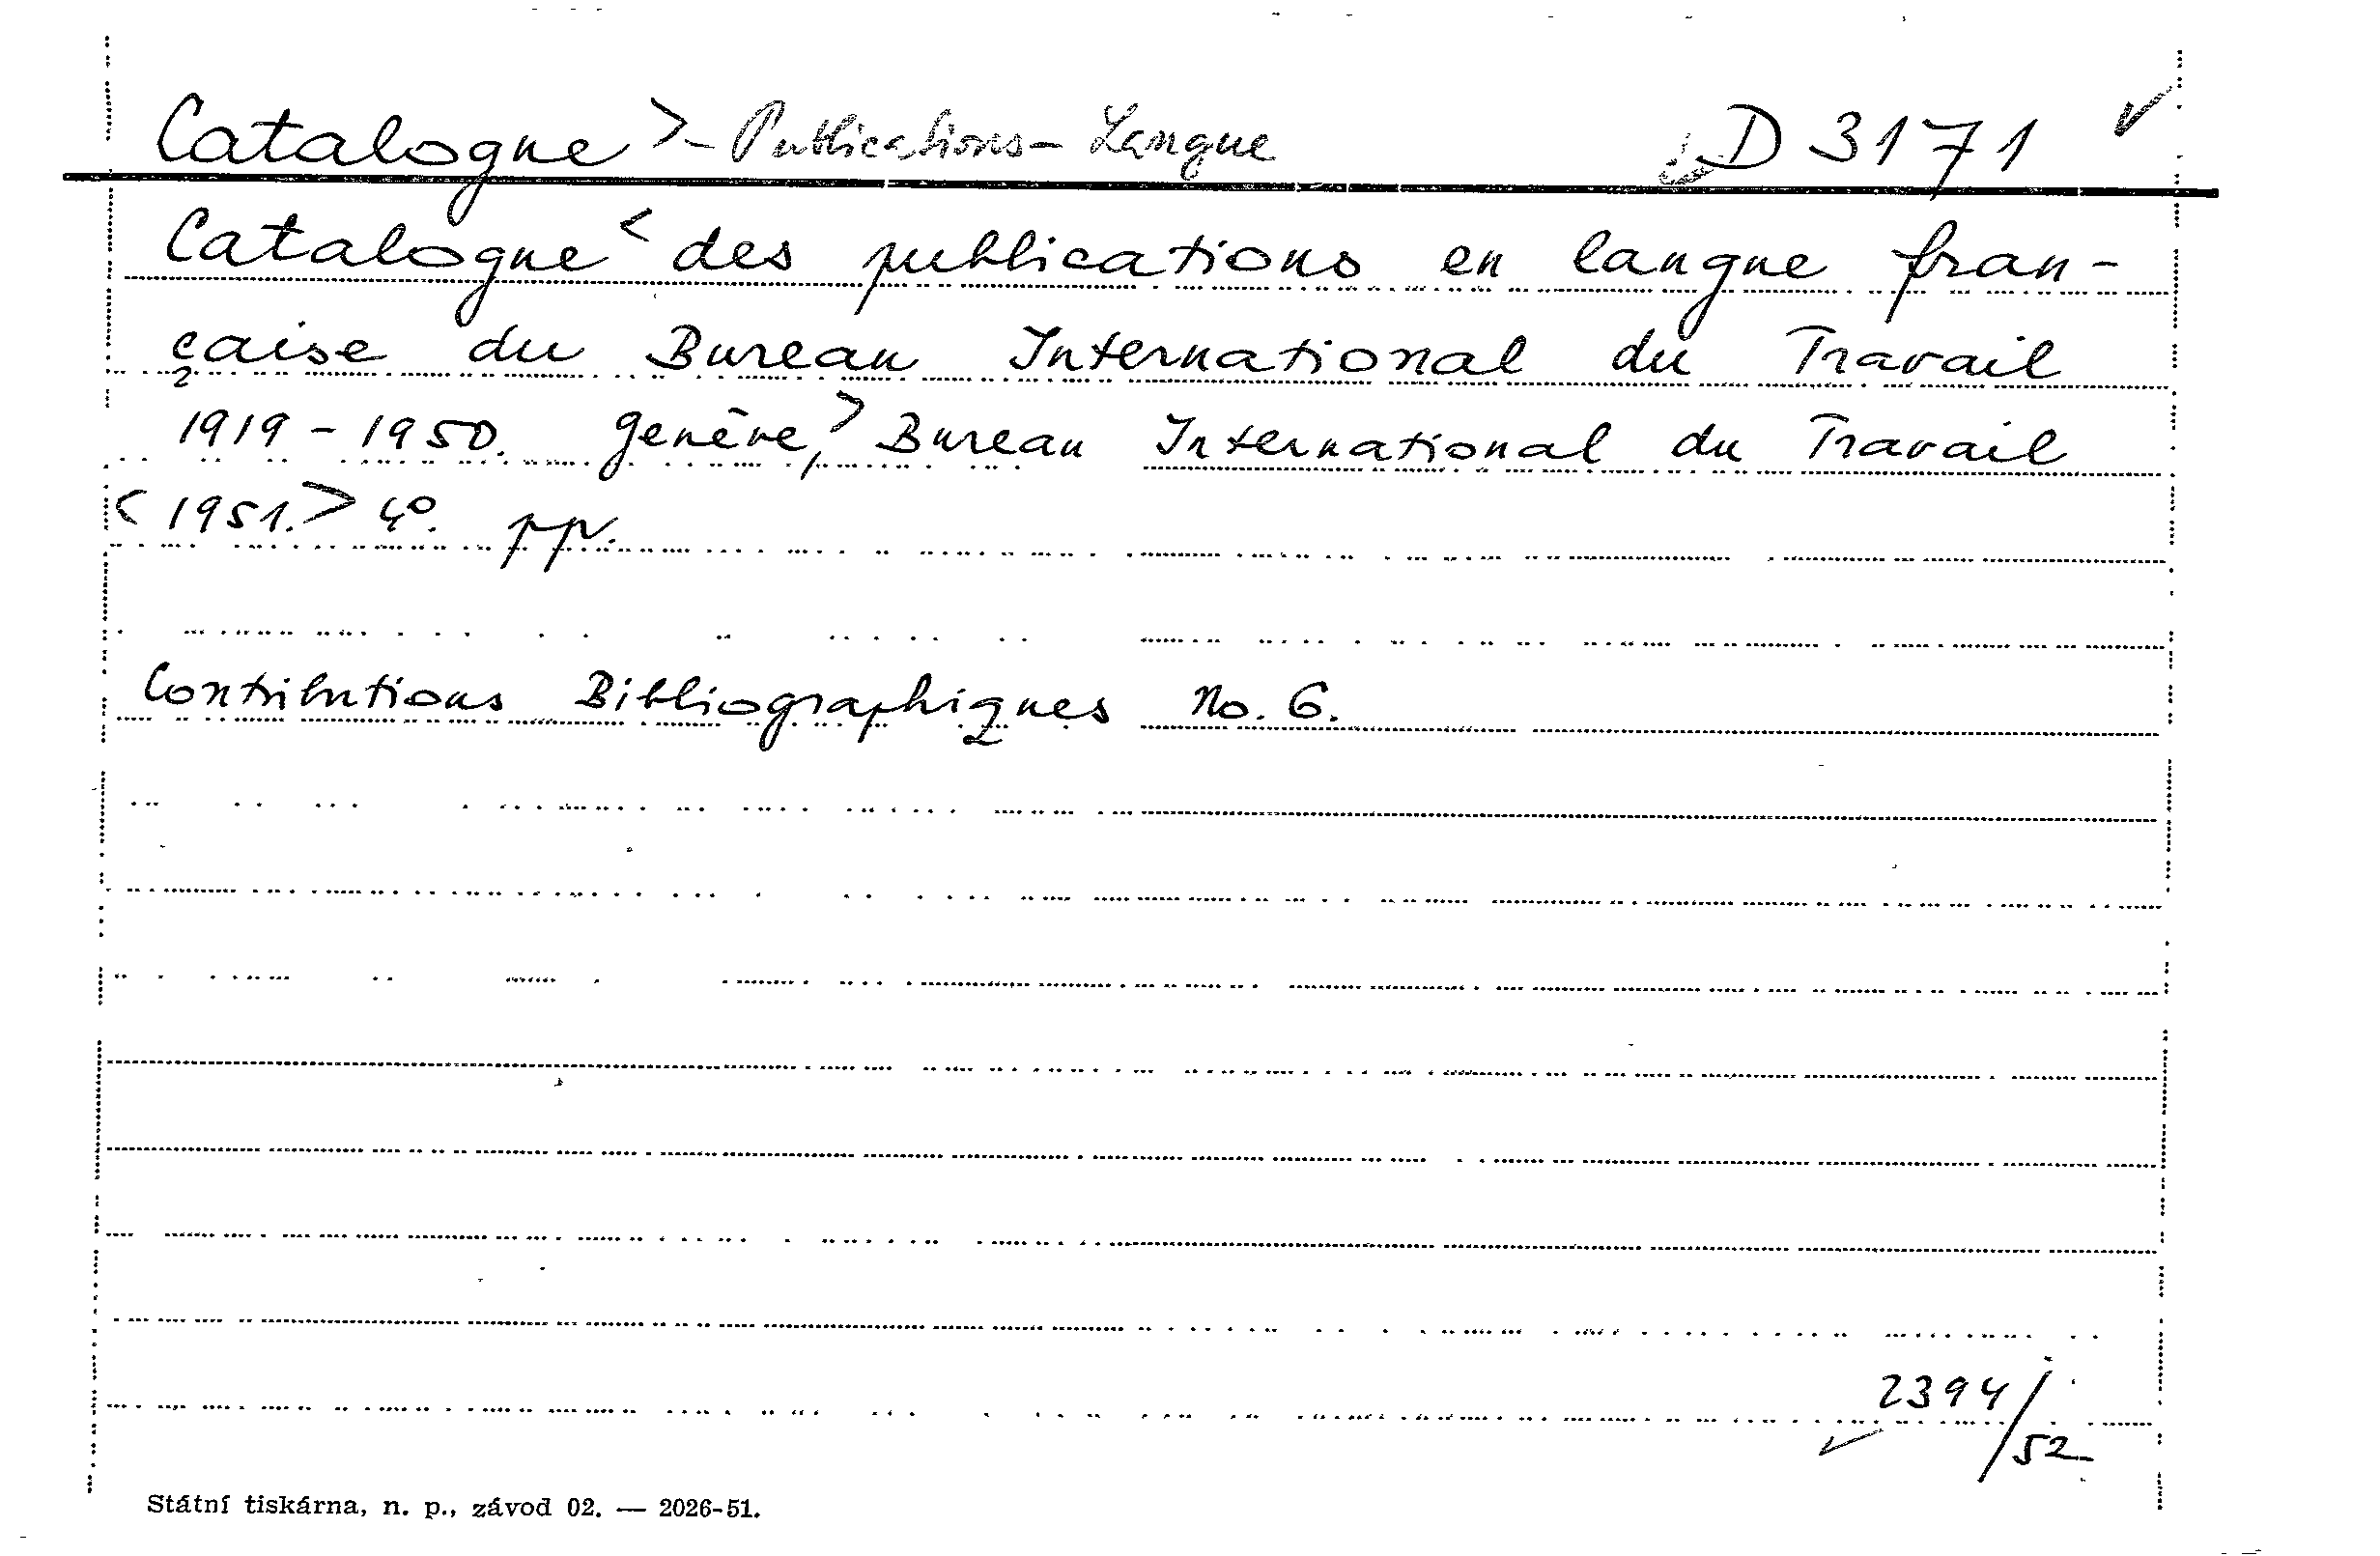 Catalogue > - Publications - Langue D 3171 ✓
Catalogue < des publications en langue fran-
çaise du Bureau International du Travail
1919 - 1950. Genève, > Bureau International du Travail
< 1951. > 4°. pp.
Contributions Bibliographiques No. 6.
2394/52
Státní tiskárna, n. p., závod 02. — 2026-51.